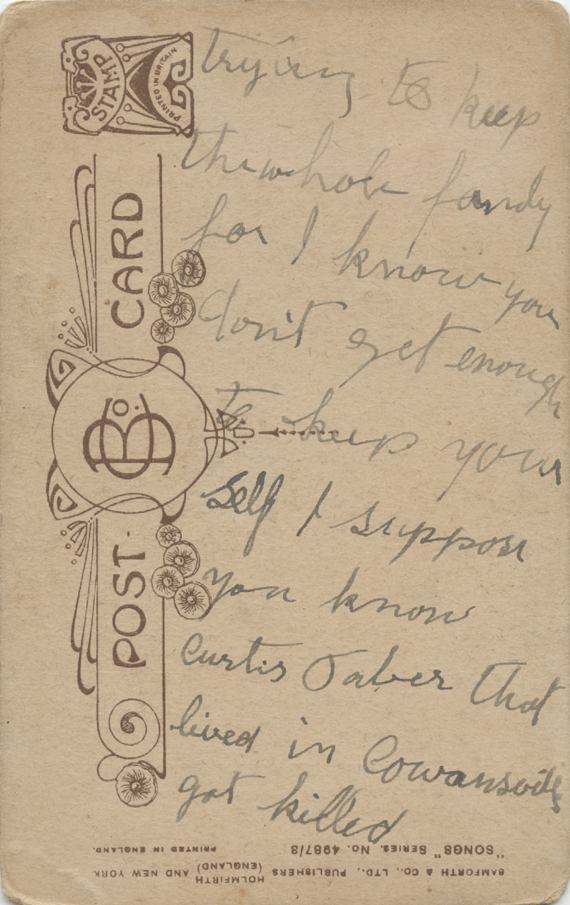 trying to keep
the whole family
for I know you
don't get enough
to keep your
self I suppose
you know
Curtis Taber that
lived in Cowansville
got killed
STAMP
PRINTED IN BRITAIN
POST CARD
B & Co.
LD.
BAMFORTH & CO., LTD., PUBLISHERS (ENGLAND) HOLMFIRTH AND NEW YORK
"SONGS" SERIES. No. 4987/3
PRINTED IN ENGLAND.